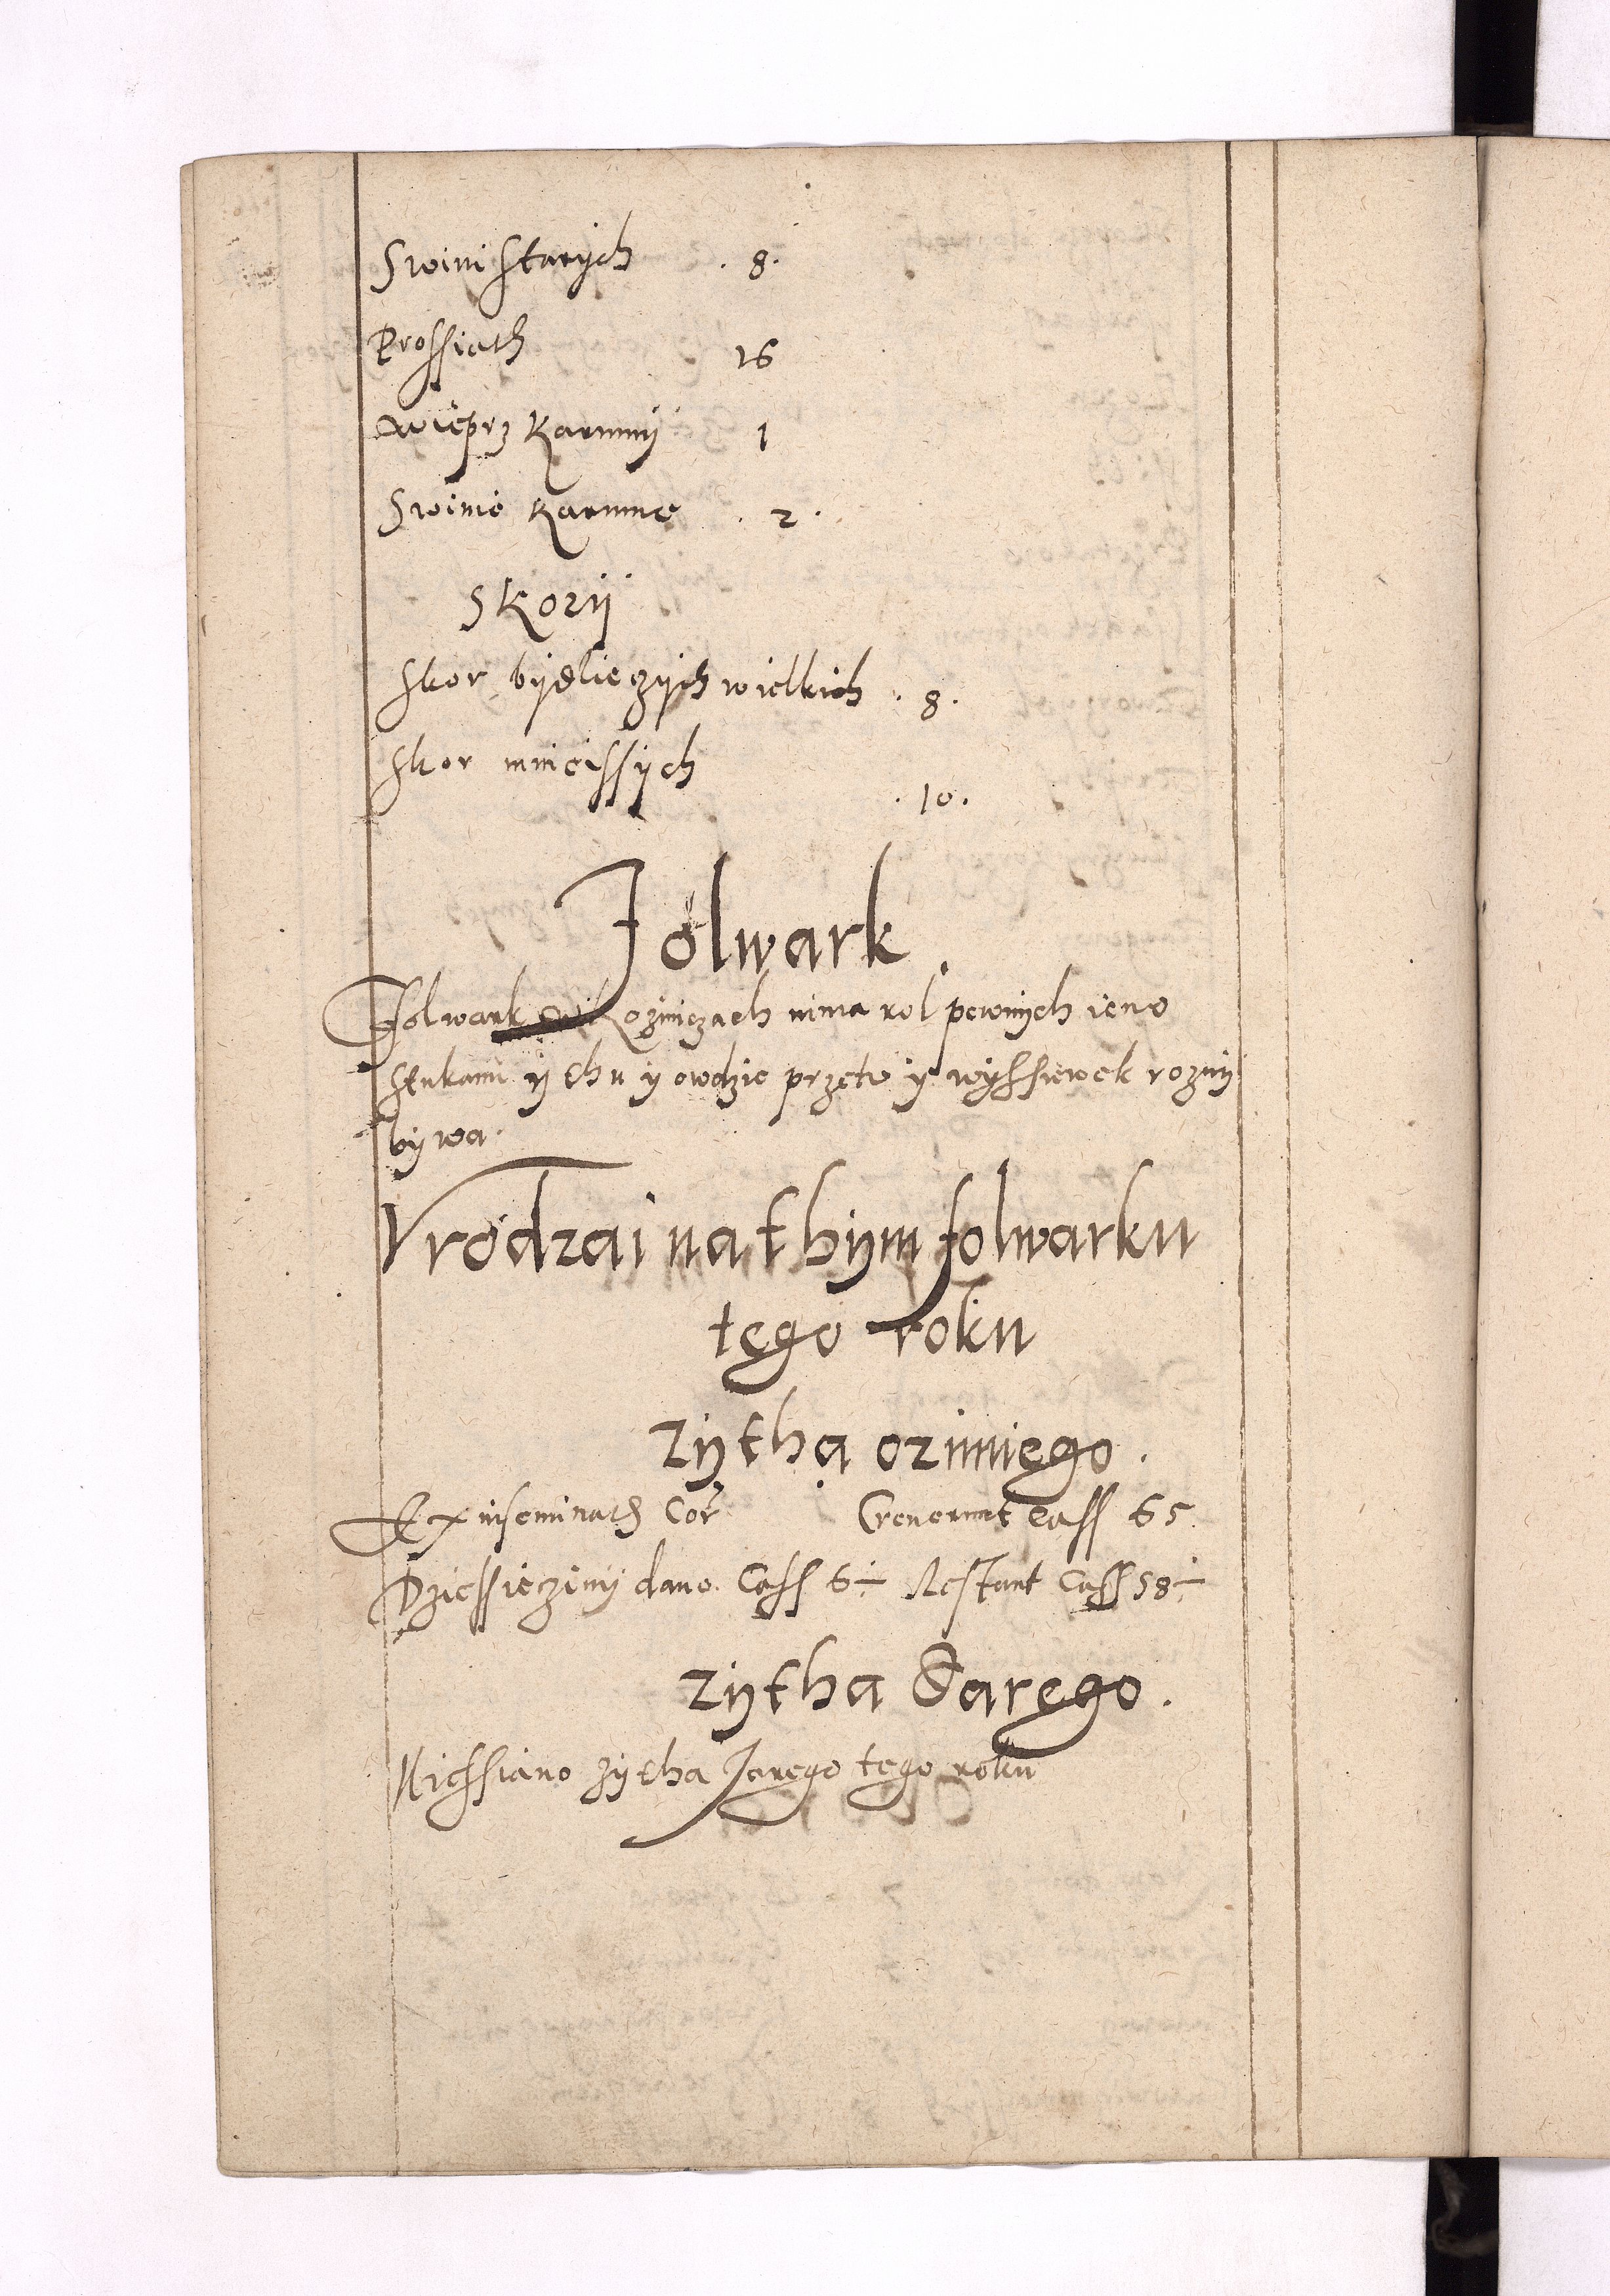 Swini starÿch . 8.
Prossiath 16
Wieprz Karmnÿ 1
Swinie Karmne . 2 .
Skorÿ
skor bÿdlieczÿch wielkich . 8 .
skor mnieissÿch . 10 .
Folwark
Folwark w Kozniczach nima rol pewnÿch ieno
stukami ÿ thu ÿ owdzie przeto ÿ wÿssiewek roznÿ
bÿwa.
Vrodzai na thÿm folwarku
tego roku
Zÿtha ozimiego .
Ex inseminatis Cor Creuerunt Cass 65
Dziessieczinÿ dano Cass 6 ÷ Restant Cass 58 ÷
Zÿtha Jarego .
Niessiano zÿtha Jarego tego roku